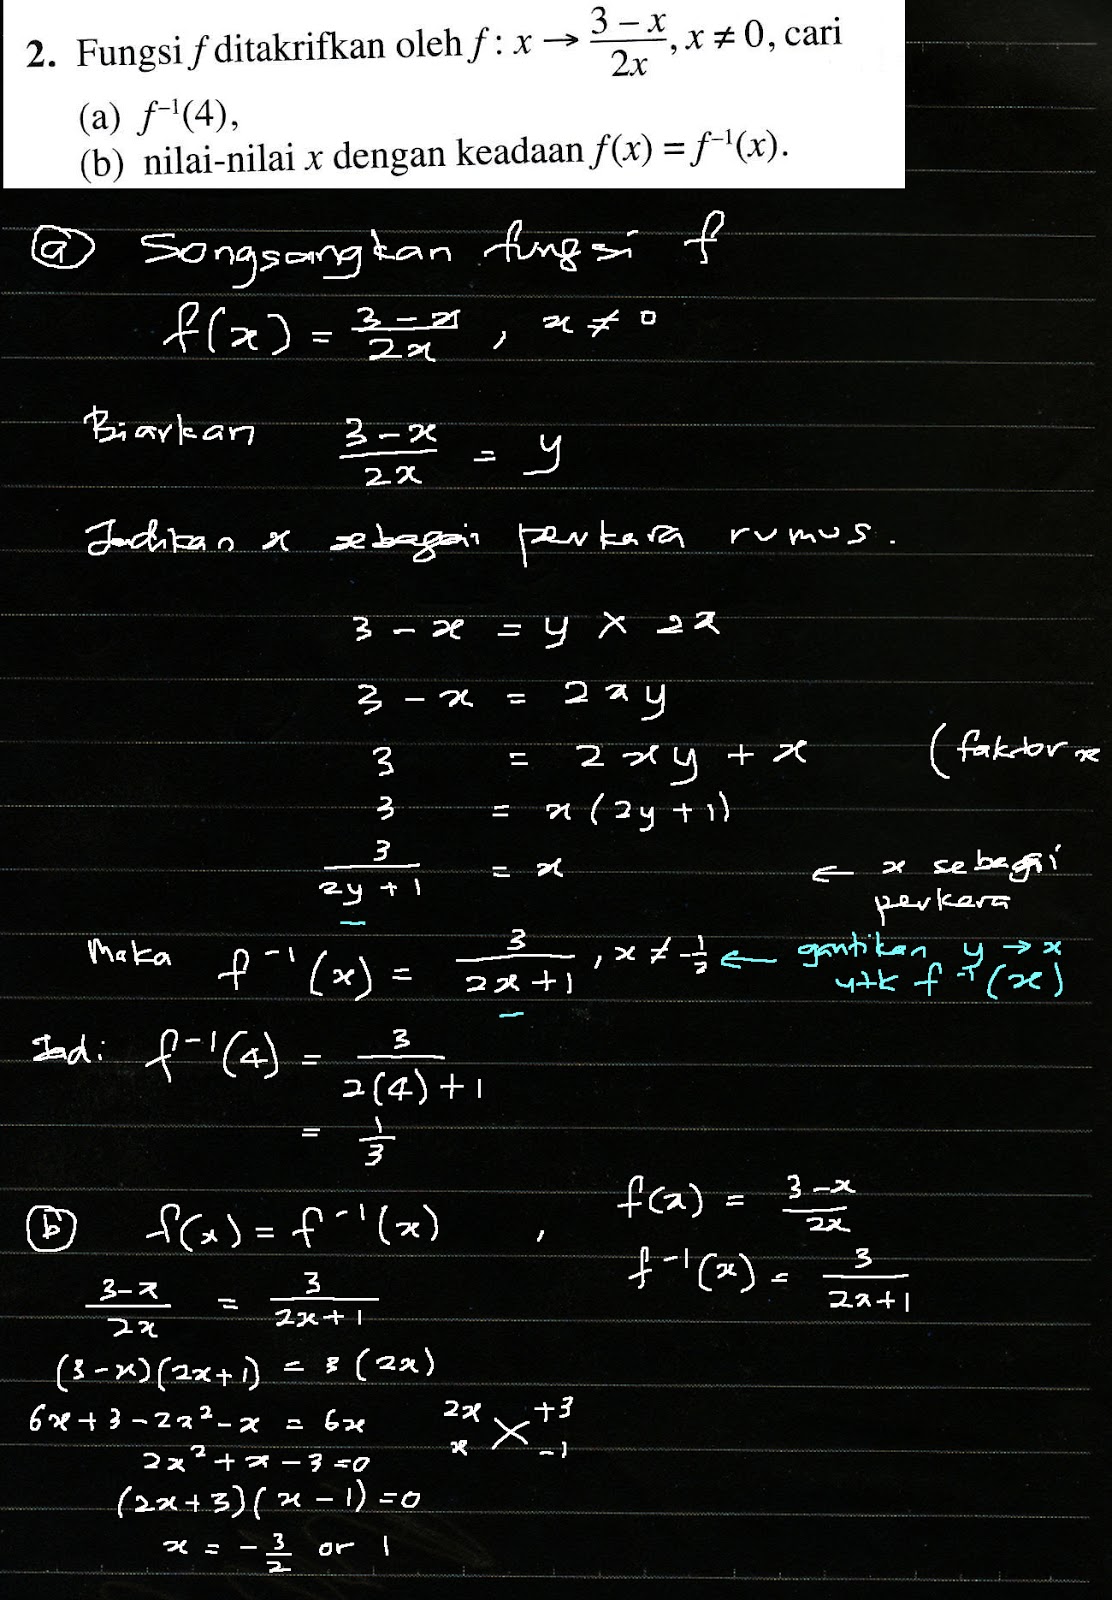 2. Fungsi f ditakrifkan oleh f : x → (3 − x)/(2x), x ≠ 0, cari
(a) f⁻¹(4),
(b) nilai-nilai x dengan keadaan f(x) = f⁻¹(x).
(a) Songsangkan fungsi f
f(x) = (3 − x)/(2x) , x ≠ 0
Biarkan (3 − x)/(2x) = y
Jadikan x sebagai perkara rumus.
3 − x = y × 2x
3 − x = 2xy
3 = 2xy + x (faktor x
3 = x(2y + 1)
3/(2y + 1) = x ← x sebagai
perkara
Maka f⁻¹(x) = 3/(2x + 1) , x ≠ −1/2 ← gantikan y → x
utk f⁻¹(x)
Jadi f⁻¹(4) = 3/(2(4) + 1)
= 1/3
(b) f(x) = f⁻¹(x) , f(x) = (3 − x)/(2x)
f⁻¹(x) = 3/(2x + 1)
(3 − x)/(2x) = 3/(2x + 1)
(3 − x)(2x + 1) = 3(2x)
6x + 3 − 2x² − x = 6x 2x +3
x −1
2x² + x − 3 = 0
(2x + 3)(x − 1) = 0
x = −3/2 or 1